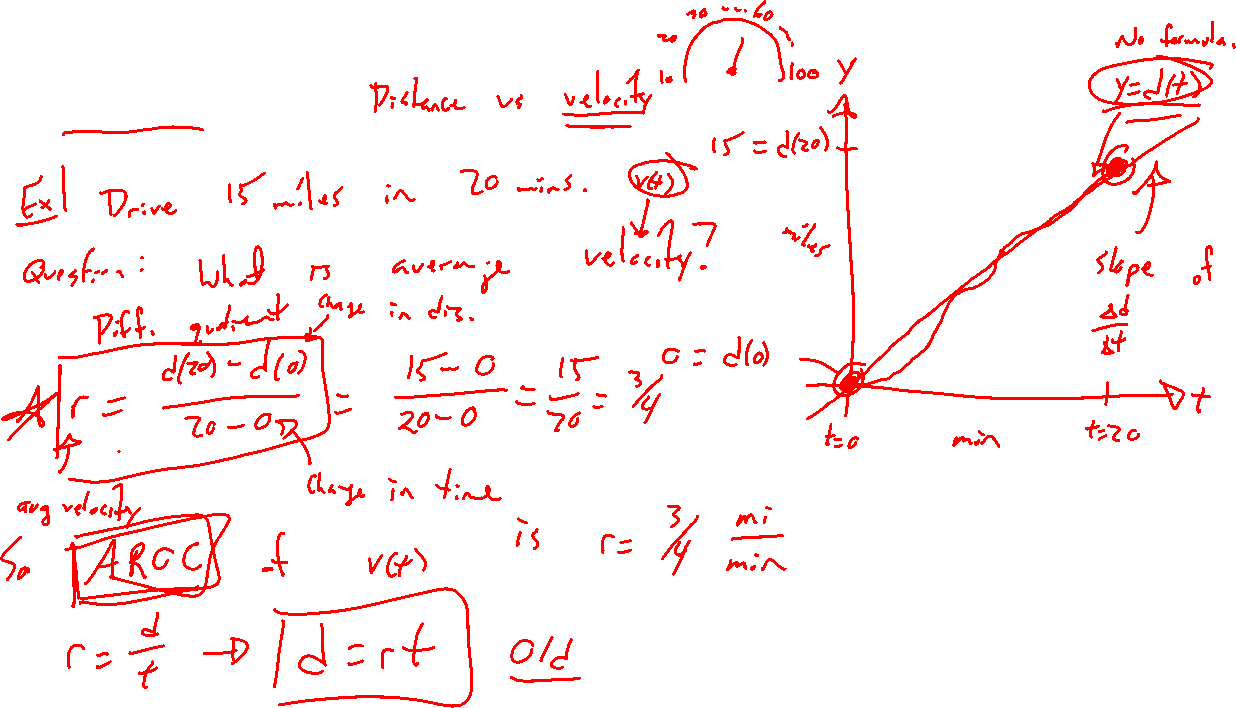 20 30 ... 60
10 100
Distance vs velocity
Ex) Drive 15 miles in 20 mins. v(t)
Question: What is average velocity?
Diff. quotient change in dis.
r = \frac{d(20) - d(0)}{20 - 0} = \frac{15 - 0}{20 - 0} = \frac{15}{20} = 3/4
change in time
avg velocity
So AROC of v(t) is r = 3/4 \frac{mi}{min}
r = \frac{d}{t} → d = rt old
No formula.
y = d(t)
y
15 = d(20)
miles
slope of
\frac{Δd}{Δt}
0 = d(0)
t
t=0 min t=20